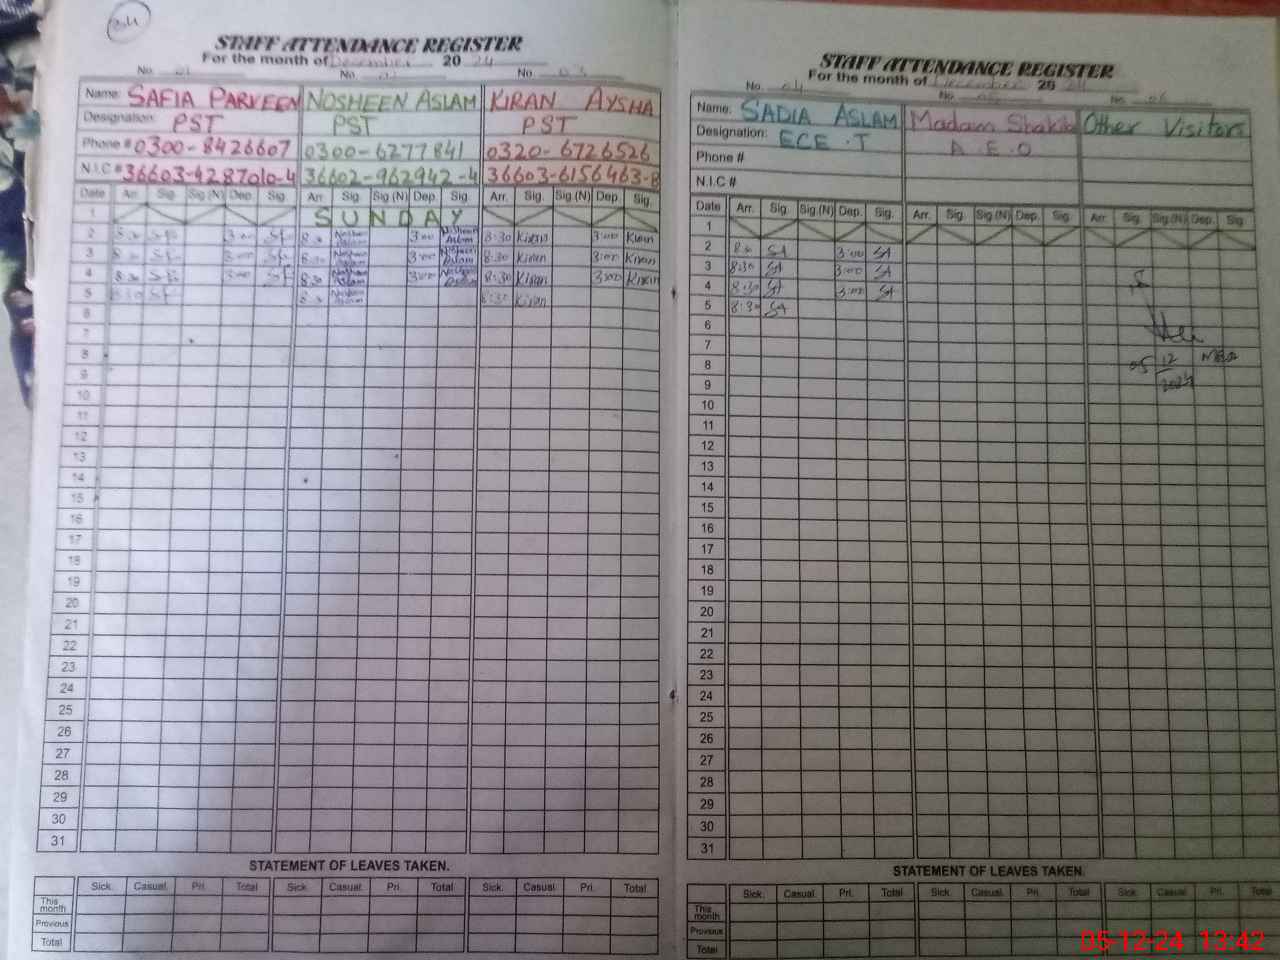 34
STAFF ATTENDANCE REGISTER
For the month of December 20 24
No. 01 No. 02 No. 03
Name: SAFIA PARVEEN NOSHEEN ASLAM KIRAN AYSHA
Designation: PST PST PST
Phone # 0300-8426607 0300-6277841 0320-6726526
N.I.C # 36603-4287010-4 36602-962942-4 36603-6156463-8
Date Arr. Sig. Sig (N) Dep. Sig. Arr. Sig. Sig (N) Dep. Sig. Arr. Sig. Sig (N) Dep. Sig.
1 SUNDAY
2 8:30 Sf 3:00 Sf 8:30 Nosheen Aslam 3:00 Nosheen Aslam 8:30 Kiran 3:00 Kiran
3 8:30 Sf 3:00 Sf 8:30 Nosheen Aslam 3:00 Nosheen Aslam 8:30 Kiran 3:00 Kiran
4 8:30 Sf 3:00 Sf 8:30 Nosheen Aslam 3:00 Nosheen Aslam 8:30 Kiran 3:00 Kiran
5 8:30 Sf 8:30 Nosheen Aslam 8:30 Kiran
6
7
8
9
10
11
12
13
14
15
16
17
18
19
20
21
22
23
24
25
26
27
28
29
30
31
STATEMENT OF LEAVES TAKEN.
Sick. Casual. Pri. Total Sick. Casual. Pri. Total Sick. Casual. Pri. Total
This month
Previous
Total
STAFF ATTENDANCE REGISTER
For the month of December 20 24
No. 04 No. 05 No. 06
Name: SADIA ASLAM Madam Shakila Other Visitors
Designation: ECE.T A.E.O
Phone #
N.I.C #
Date Arr. Sig. Sig (N) Dep. Sig. Arr. Sig. Sig (N) Dep. Sig. Arr. Sig. Sig (N) Dep. Sig.
1
2 8:30 SA 3:00 SA
3 8:30 SA 3:00 SA
4 8:30 SA 3:00 SA
5 8:30 SA
6
7
8 05/12/2024
9
10
11
12
13
14
15
16
17
18
19
20
21
22
23
24
25
26
27
28
29
30
31
STATEMENT OF LEAVES TAKEN.
Sick. Casual. Pri. Total Sick. Casual. Pri. Total Sick. Casual Pri. Total
This month
Previous
Total
05-12-24 13:42